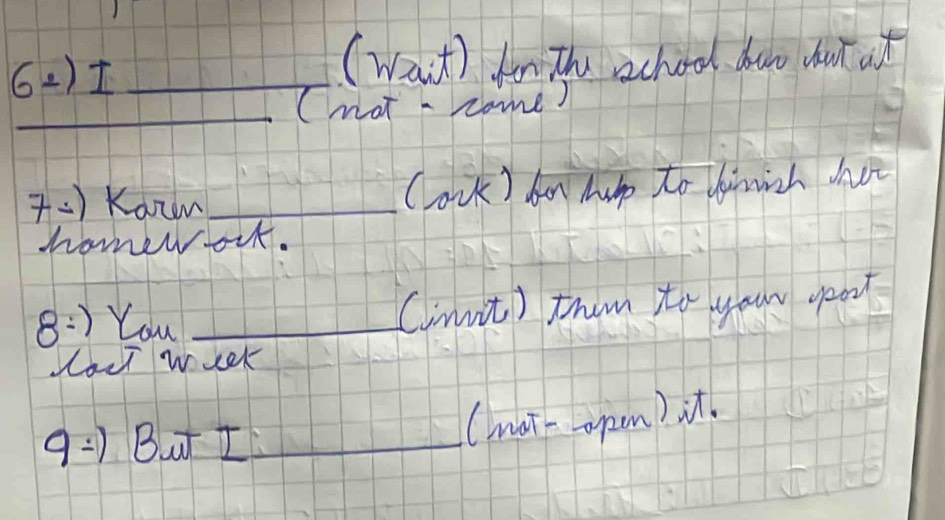 6-) I ____________ (Wait) for the school bus but it
____________. (not - come)
7-) Karen ____________ (ask) for help to finish her
homework.
8-) You ____________ (invit) them to your
last week
9-) But I ____________ (not - open) it.